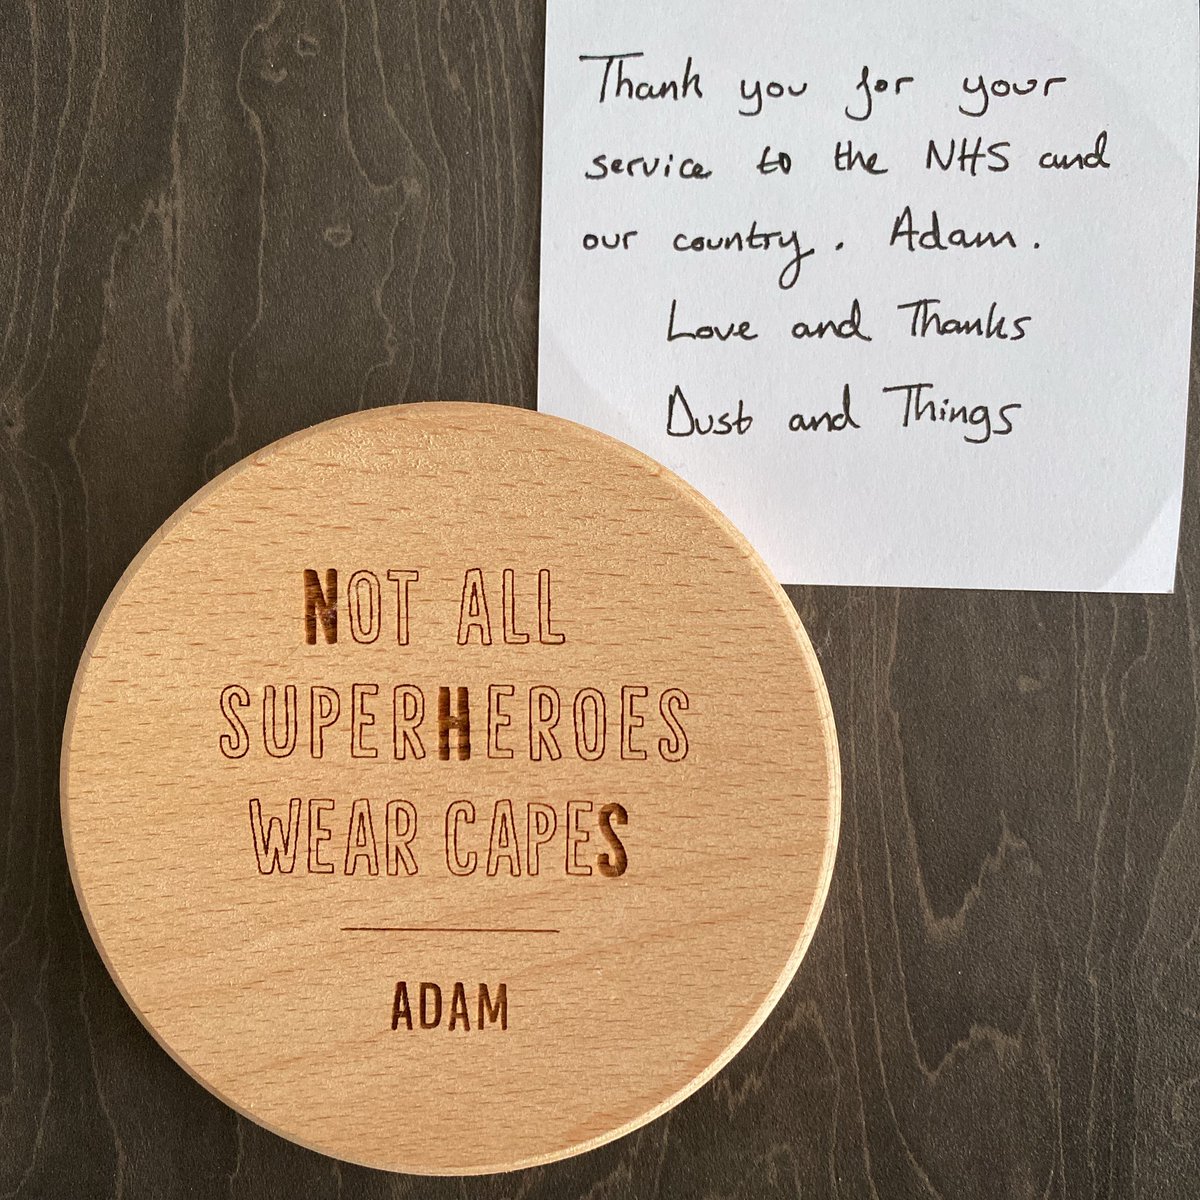 Thank you for your
service to the NHS and
our country. Adam.
Love and Thanks
Dust and Things
NOT ALL
SUPERHEROES
WEAR CAPES
ADAM